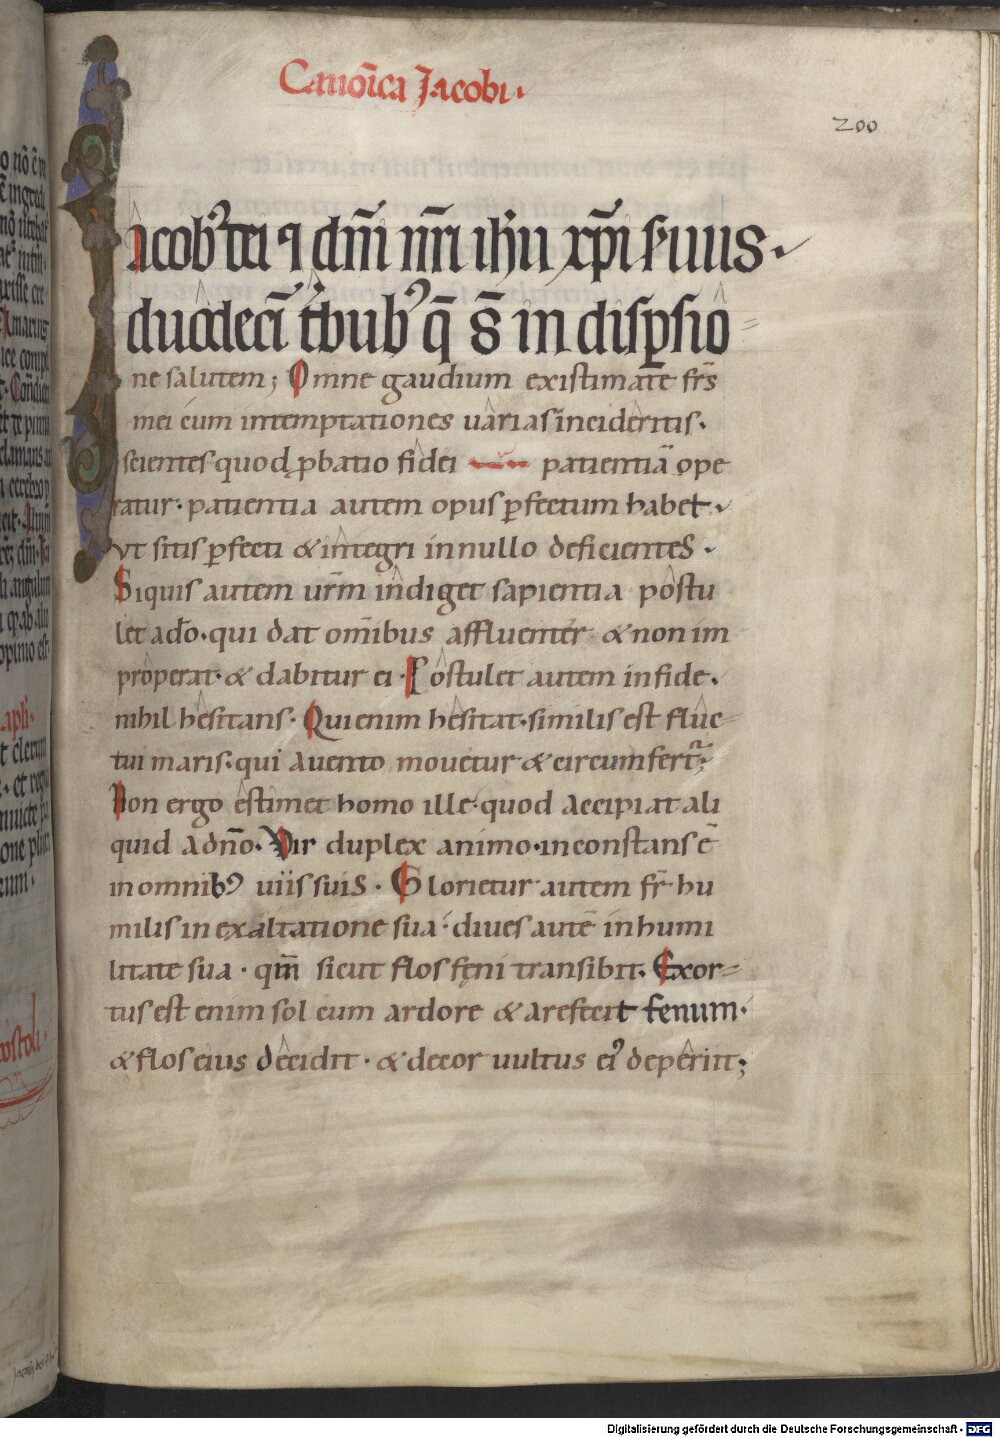 Canoĩca Jacobi.
200
Iacob᷒ dei ⁊ dñi nr̃i ihu xp̃i ſeruus.
duodecĩ tribub᷒ q̃ s̃ in diſꝑſio
ne salutem; Omne gaudium exiſtimate fr̃s
mei cum intemptationes uarias incideritis.
scientes quod ꝓbatio fidei patientiã ope
ratur. patientia autem opus ꝑfectum habet.
vt sitis ꝑfecti & integri in nullo deficientes.
Siquis autem ur̃m indiget sapientia poſtu
let a dõ. qui dat om̃ibus affluenter & non im
properat. & dabitur ei. Poſtulet autem in fide.
nihil heſitans. Qui enim heſitat. similis eſt fluc
tui maris. qui a uento mouetur & circumfert᷑;
Non ergo eſtimet homo ille. quod accipiat ali
quid a dñо. Vir duplex animo. inconſtans ẽ
in omnib᷒ uiis suis. Glorietur autem fr̃ hu
milis in exaltatione sua. diues autẽ in humi
litate sua. qm̃ sicut flos fęni transibit. Exor=
tus eſt enim sol cum ardore & arefecit fenum.
& flos eius decidit. & decor uultus ei᷒ deperiit;
Digitalisierung gefördert durch die Deutsche Forschungsgemeinschaft - DFG